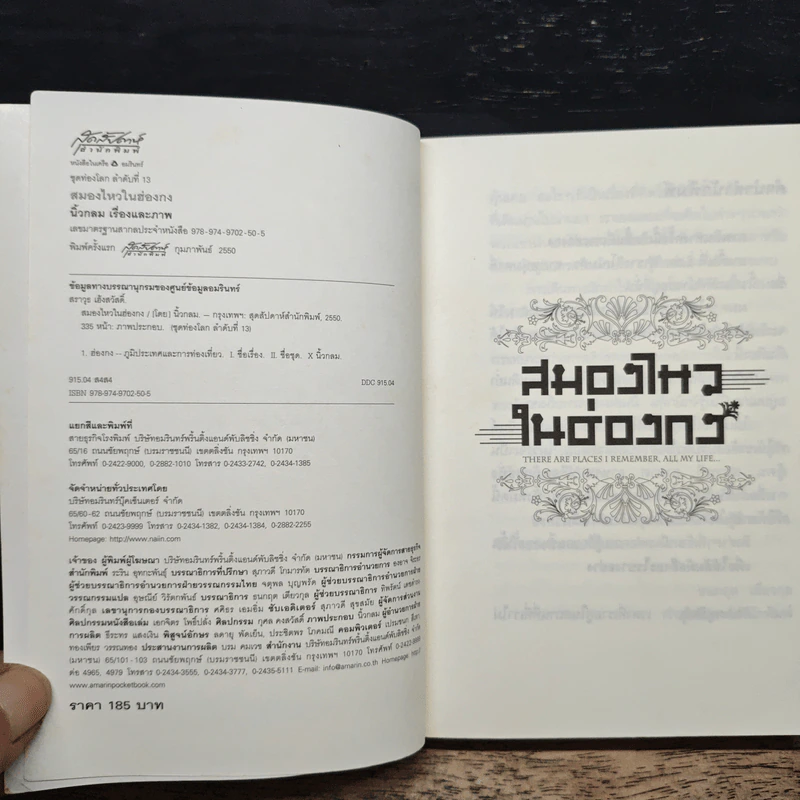 สุดสัปดาห์
สำนักพิมพ์
หนังสือในเครือ อมรินทร์
ชุดท่องโลก ลำดับที่ 13
สมองไหวในฮ่องกง
นิ้วกลม เรื่องและภาพ
เลขมาตรฐานสากลประจำหนังสือ 978-974-9702-50-5
พิมพ์ครั้งแรก สุดสัปดาห์ สำนักพิมพ์ กุมภาพันธ์ 2550
ข้อมูลทางบรรณานุกรมของศูนย์ข้อมูลอมรินทร์
สราวุธ เฮ้งสวัสดิ์.
สมองไหวในฮ่องกง / [โดย] นิ้วกลม. -- กรุงเทพฯ: สุดสัปดาห์สำนักพิมพ์, 2550.
335 หน้า: ภาพประกอบ. (ชุดท่องโลก ลำดับที่ 13)
1. ฮ่องกง -- ภูมิประเทศและการท่องเที่ยว. I. ชื่อเรื่อง. II. ชื่อชุด. X นิ้วกลม.
915.04 ส4ส4 DDC 915.04
ISBN 978-974-9702-50-5
แยกสีและพิมพ์ที่
สายธุรกิจโรงพิมพ์ บริษัทอมรินทร์พริ้นติ้งแอนด์พับลิชชิ่ง จำกัด (มหาชน)
65/16 ถนนชัยพฤกษ์ (บรมราชชนนี) เขตตลิ่งชัน กรุงเทพฯ 10170
โทรศัพท์ 0-2422-9000, 0-2882-1010 โทรสาร 0-2433-2742, 0-2434-1385
จัดจำหน่ายทั่วประเทศโดย
บริษัทอมรินทร์บุ๊คเซ็นเตอร์ จำกัด
65/60-62 ถนนชัยพฤกษ์ (บรมราชชนนี) เขตตลิ่งชัน กรุงเทพฯ 10170
โทรศัพท์ 0-2423-9999 โทรสาร 0-2434-1382, 0-2434-1384, 0-2882-2255
Homepage: http://www.naiin.com
เจ้าของ ผู้พิมพ์ผู้โฆษณา บริษัทอมรินทร์พริ้นติ้งแอนด์พับลิชชิ่ง จำกัด (มหาชน) กรรมการผู้จัดการสายธุรกิจ
สำนักพิมพ์ ระริน อุทกะพันธุ์ บรรณาธิการที่ปรึกษา สุภาวดี โกมารทัต บรรณาธิการอำนวยการ องอาจ
ผู้ช่วยบรรณาธิการอำนวยการฝ่ายวรรณกรรมไทย จตุพล บุญพรัด ผู้ช่วยบรรณาธิการอำนวยการฝ่าย
วรรณกรรมแปล อุษณีย์ วิรัตกพันธ์ บรรณาธิการ ธนกฤต เตียวกุล ผู้ช่วยบรรณาธิการ ทิพรัตน์
ศักดิ์กุล เลขานุการกองบรรณาธิการ ศศิธร เอมอิ่ม ซับเอดิเตอร์ สุภาวดี สุขสมัย ผู้จัดการส่วนงาน
ศิลปกรรมหนังสือเล่ม เอกจิตร โพธิ์ปลั่ง ศิลปกรรม กุศล คงสวัสดิ์ ภาพประกอบ นิ้วกลม ผู้อำนวยการฝ่าย
การผลิต ธีระทร แสงเงิน พิสูจน์อักษร ลดายุ พัดเย็น, ประชิตพร โภคมณี คอมพิวเตอร์ เปรมชนก
ทองเพียร วรรณทอง ประสานงานการผลิต บรม คมเวช สำนักงาน บริษัทอมรินทร์พริ้นติ้งแอนด์พับลิชชิ่ง จำกัด
(มหาชน) 65/101-103 ถนนชัยพฤกษ์ (บรมราชชนนี) เขตตลิ่งชัน กรุงเทพฯ 10170 โทรศัพท์
ต่อ 4965, 4979 โทรสาร 0-2434-3555, 0-2434-3777, 0-2435-5111 E-mail: info@amarin.co.th Homepage:
www.amarinpocketbook.com
ราคา 185 บาท
สมองไหว
ในฮ่องกง
THERE ARE PLACES I REMEMBER, ALL MY LIFE...